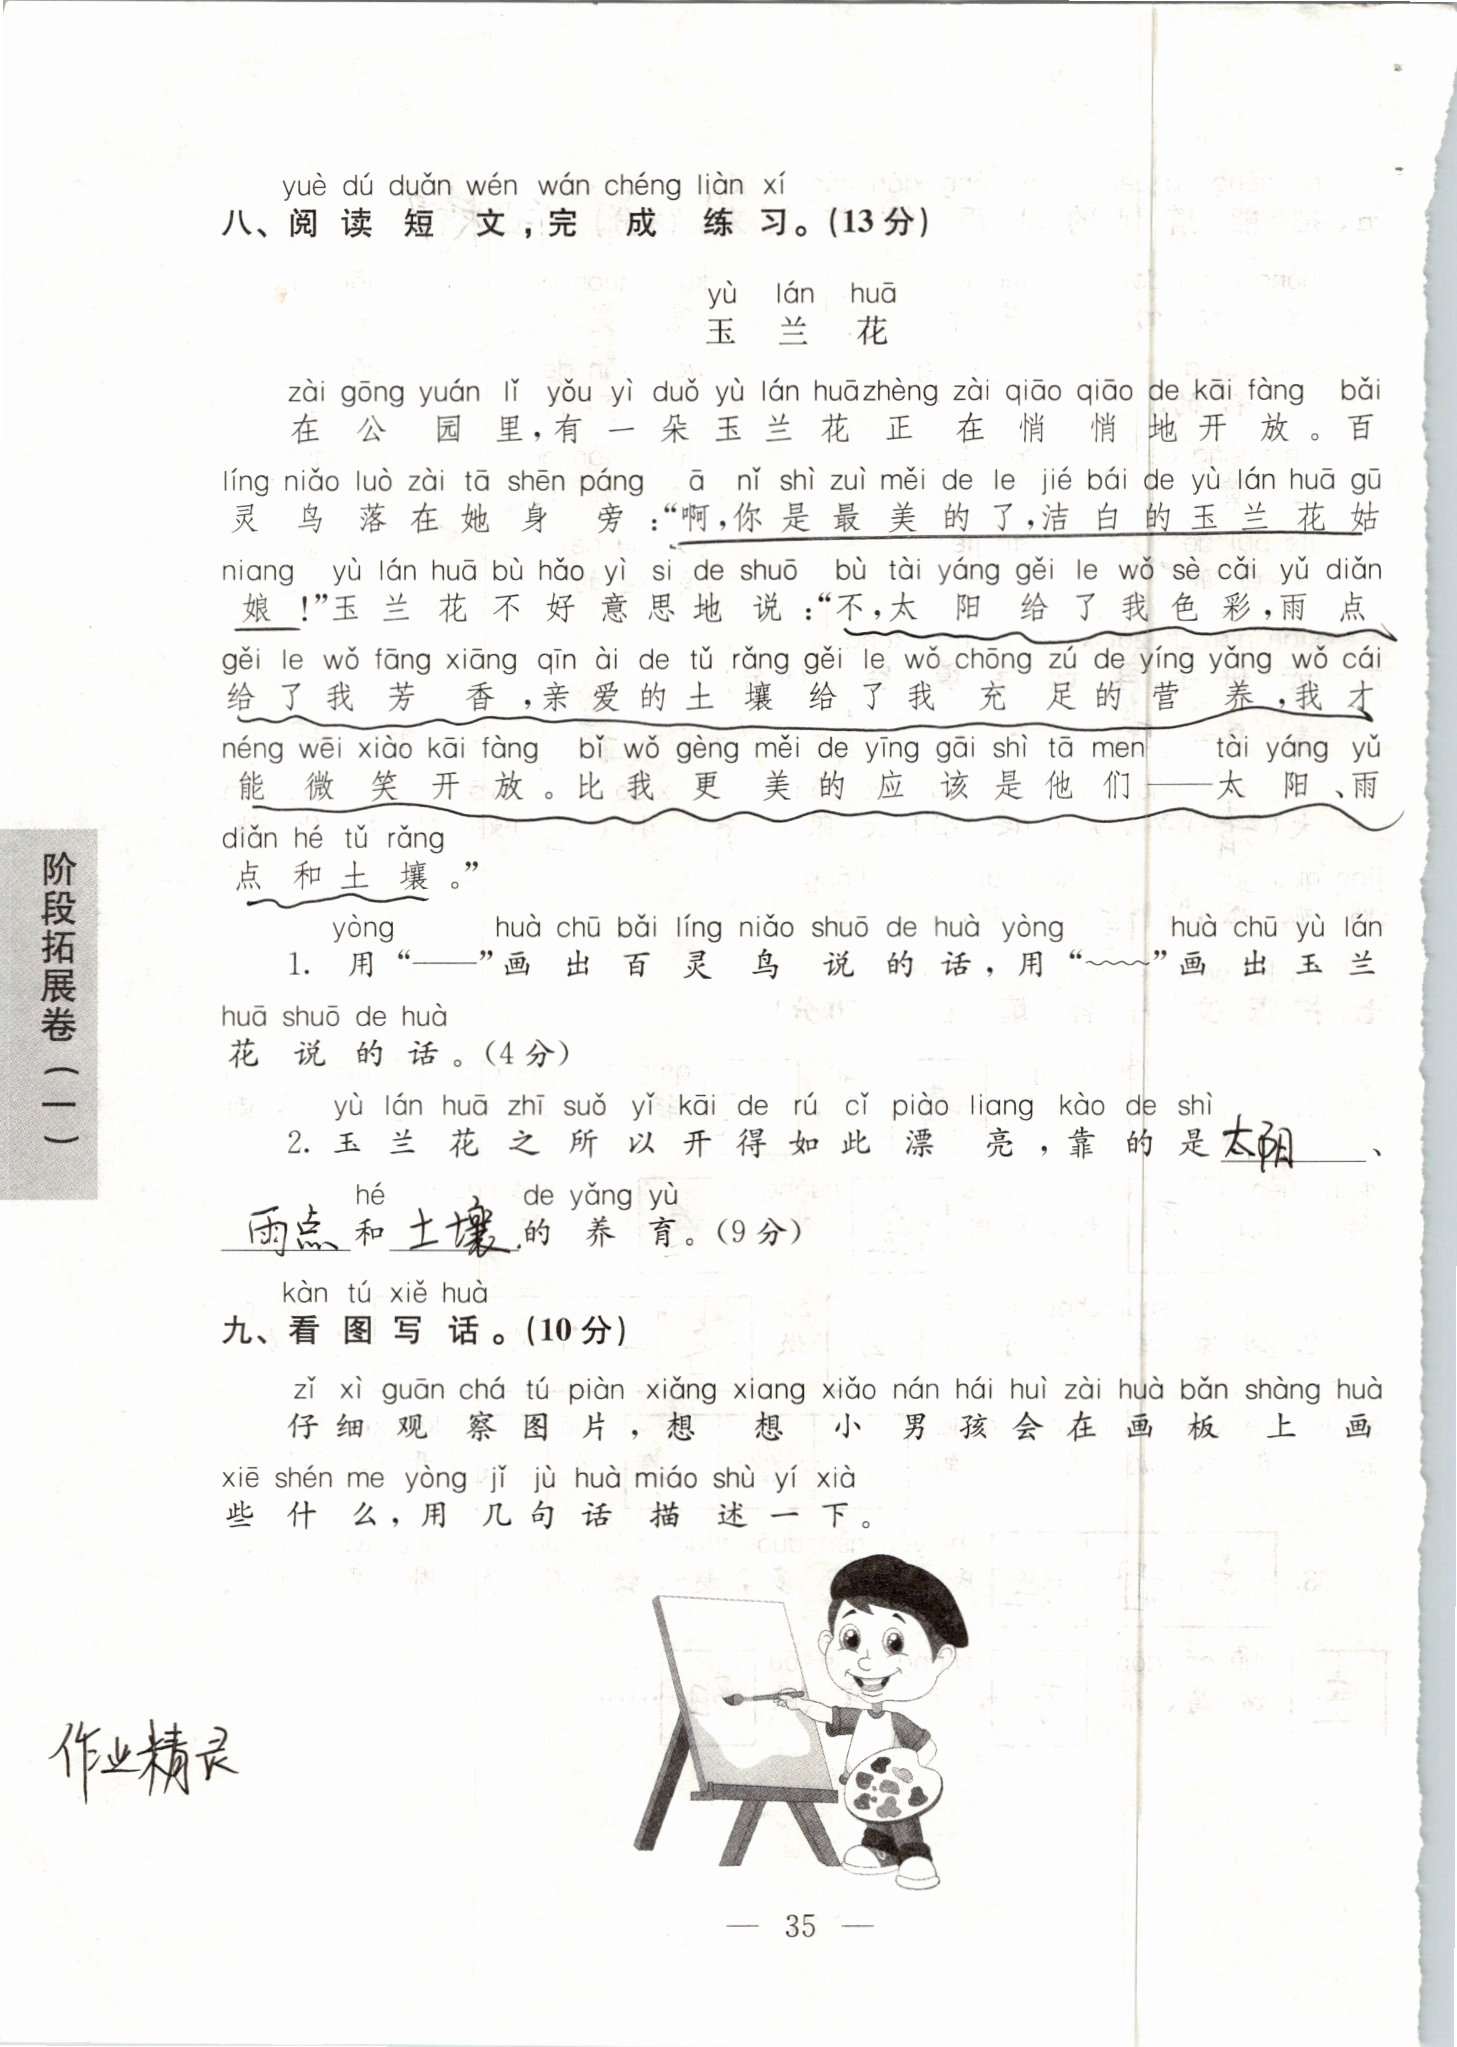 yuè dú duǎn wén wán chéng liàn xí
八、阅读短文,完成练习。(13分)
yù lán huā
玉兰花
zài gōng yuán lǐ yǒu yì duǒ yù lán huā zhèng zài qiāo qiāo de kāi fàng bǎi
在公园里,有一朵玉兰花正在悄悄地开放。百
líng niǎo luò zài tā shēn páng ā nǐ shì zuì měi de le jié bái de yù lán huā gū
灵鸟落在她身旁:“啊,你是最美的了,洁白的玉兰花姑
niang yù lán huā bù hǎo yì si de shuō bù tài yáng gěi le wǒ sè cǎi yǔ diǎn
娘!”玉兰花不好意思地说:“不,太阳给了我色彩,雨点
gěi le wǒ fāng xiāng qīn ài de tǔ rǎng gěi le wǒ chōng zú de yíng yǎng wǒ cái
给了我芳香,亲爱的土壤给了我充足的营养,我才
néng wēi xiào kāi fàng bǐ wǒ gèng měi de yīng gāi shì tā men tài yáng yǔ
能微笑开放。比我更美的应该是他们——太阳、雨
diǎn hé tǔ rǎng
点和土壤。”
yòng huà chū bǎi líng niǎo shuō de huà yòng huà chū yù lán
1. 用“——”画出百灵鸟说的话,用“﹏﹏”画出玉兰
huā shuō de huà
花说的话。(4分)
yù lán huā zhī suǒ yǐ kāi de rú cǐ piào liang kào de shì
2. 玉兰花之所以开得如此漂亮,靠的是太阳、
hé de yǎng yù
雨点和土壤的养育。(9分)
kàn tú xiě huà
九、看图写话。(10分)
zǐ xì guān chá tú piàn xiǎng xiang xiǎo nán hái huì zài huà bǎn shàng huà
仔细观察图片,想想小男孩会在画板上画
xiē shén me yòng jǐ jù huà miáo shù yí xià
些什么,用几句话描述一下。
阶段拓展卷(一)
作业精灵
— 35 —